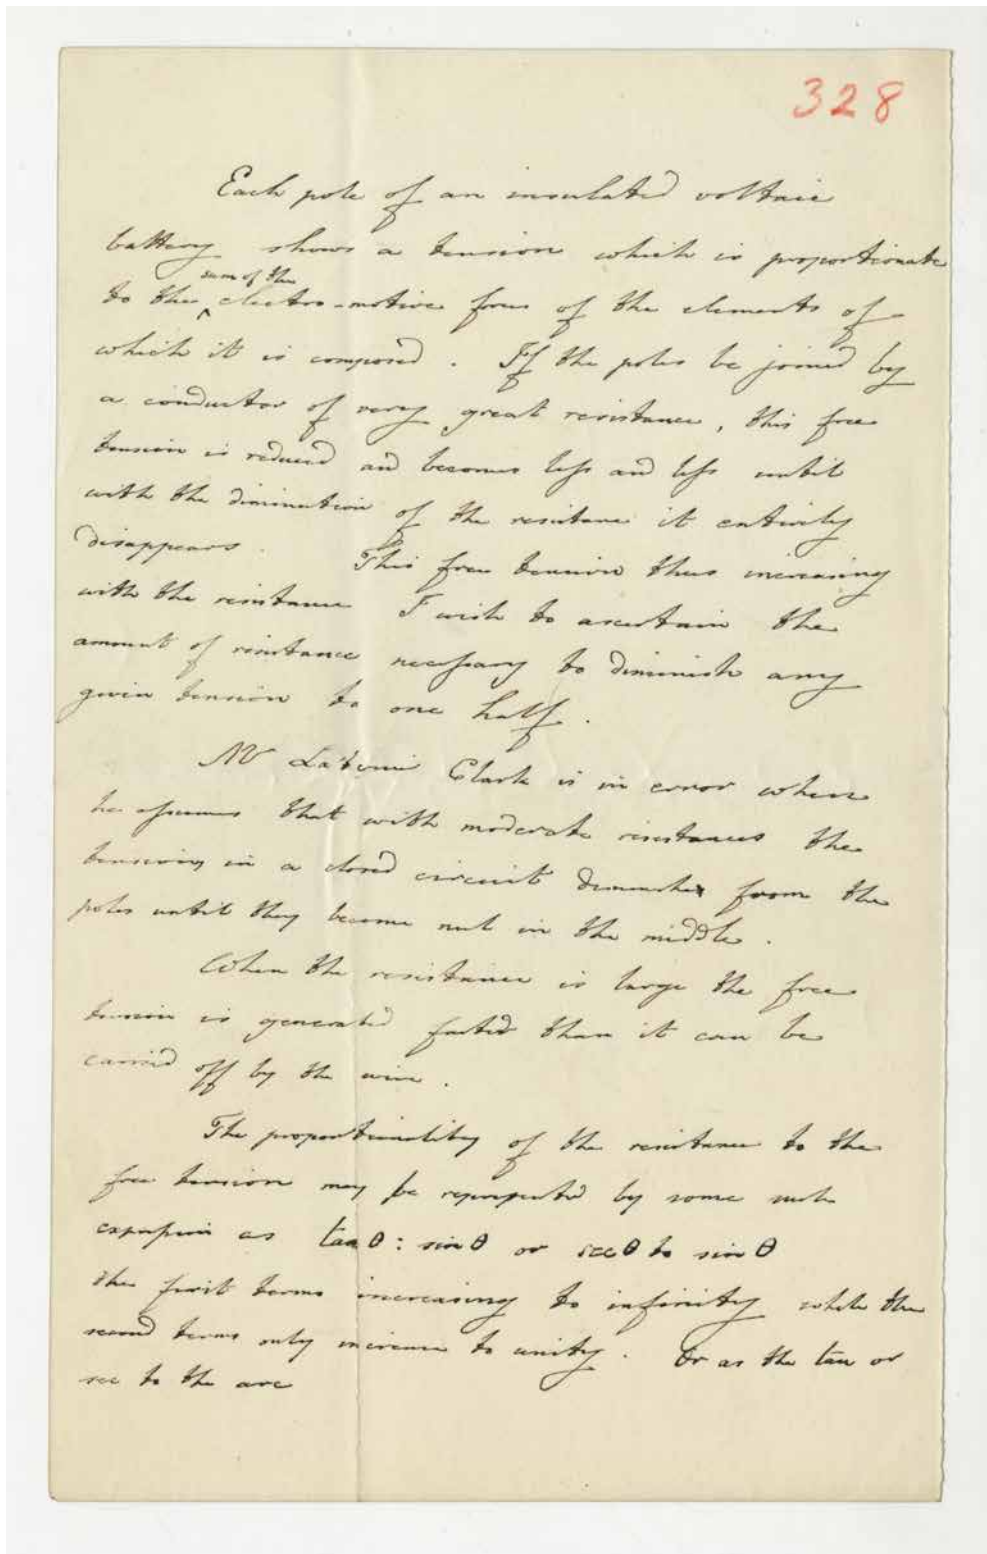 328
Each pole of an insulated voltaic
battery shows a tension which is proportionate
sum of the
to the ‸ electro-motive force of the elements of
which it is composed. If the poles be joined by
a conductor of very great resistance, this free
tension is reduced and becomes less and less until
with the diminution of the resistance it entirely
disappears. This free tension thus increasing
with the resistance I wish to ascertain the
amount of resistance necessary to diminish any
given tension to one half.
Mr Latimer Clark is in error when
he assumes that with moderate resistances the
tensions in a closed circuit diminishes from the
poles until they become null in the middle.
When the resistance is large the free
tension is generated faster than it can be
carried off by the wire.
The proportionality of the resistance to the
free tension may be represented by some such
expression as tan θ : sin θ or sec θ to sin θ
the first terms increasing to infinity while the
second terms only increase to unity. Or as the tan or
sec to the arc